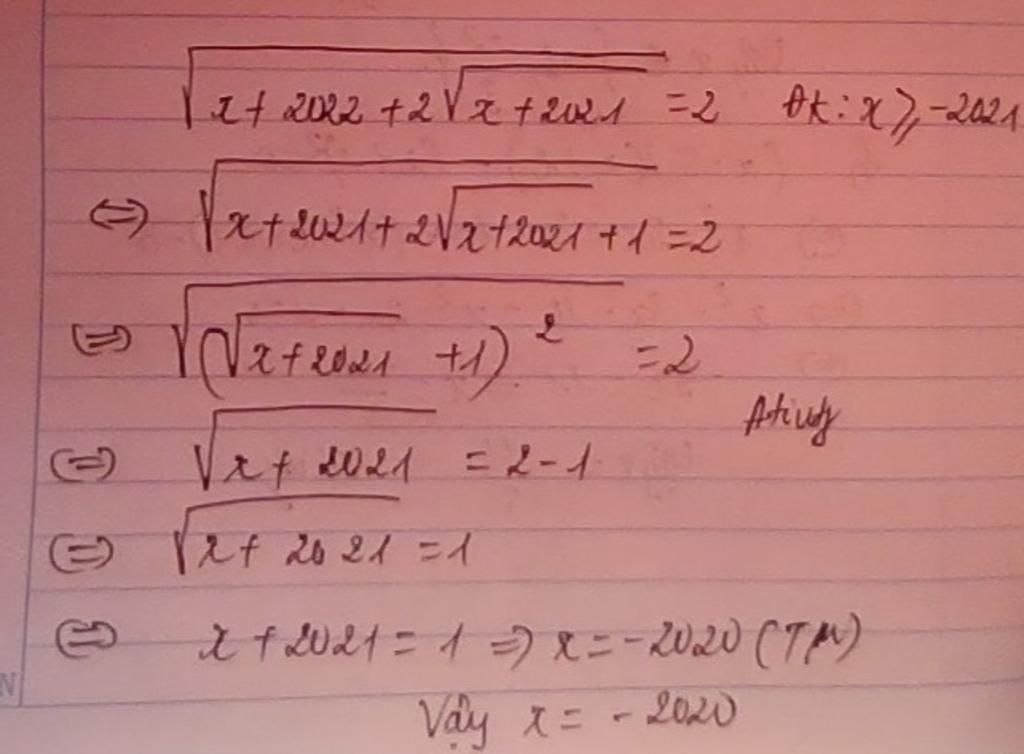 √(x + 2022 + 2√(x + 2021)) = 2 Đk: x ≥ -2021
⇔ √(x + 2021 + 2√(x + 2021) + 1) = 2
⇔ √((√(x + 2021) + 1)²) = 2
⇔ √(x + 2021) = 2 - 1
⇔ √(x + 2021) = 1
⇔ x + 2021 = 1 ⇒ x = -2020 (TM)
Vậy x = -2020